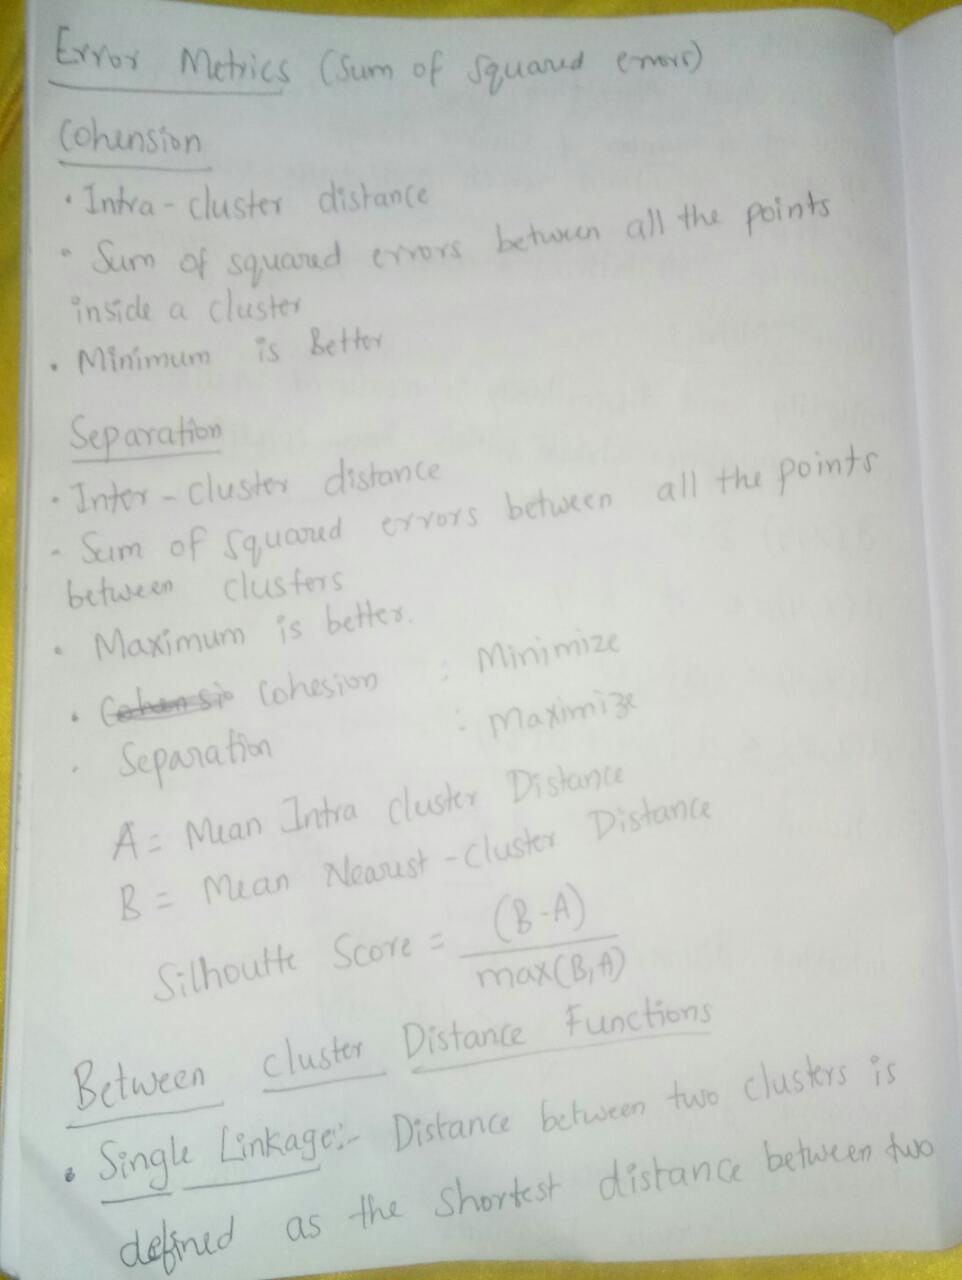 Error Metrics (Sum of Squared errors)
Cohension
• Intra-cluster distance
• Sum of squared errors between all the points
inside a cluster
• Minimum is Better
Separation
• Inter-cluster distance
• Sum of Squared errors between all the points
between clusters
• Maximum is better.
• Cohensio Cohesion : Minimize
• Separation : Maximize
A = Mean Intra cluster Distance
B = Mean Nearest-Cluster Distance
Silhoutte Score = (B-A)
max(B,A)
Between cluster Distance Functions
• Single Linkage:- Distance between two clusters is
defined as the shortest distance between two